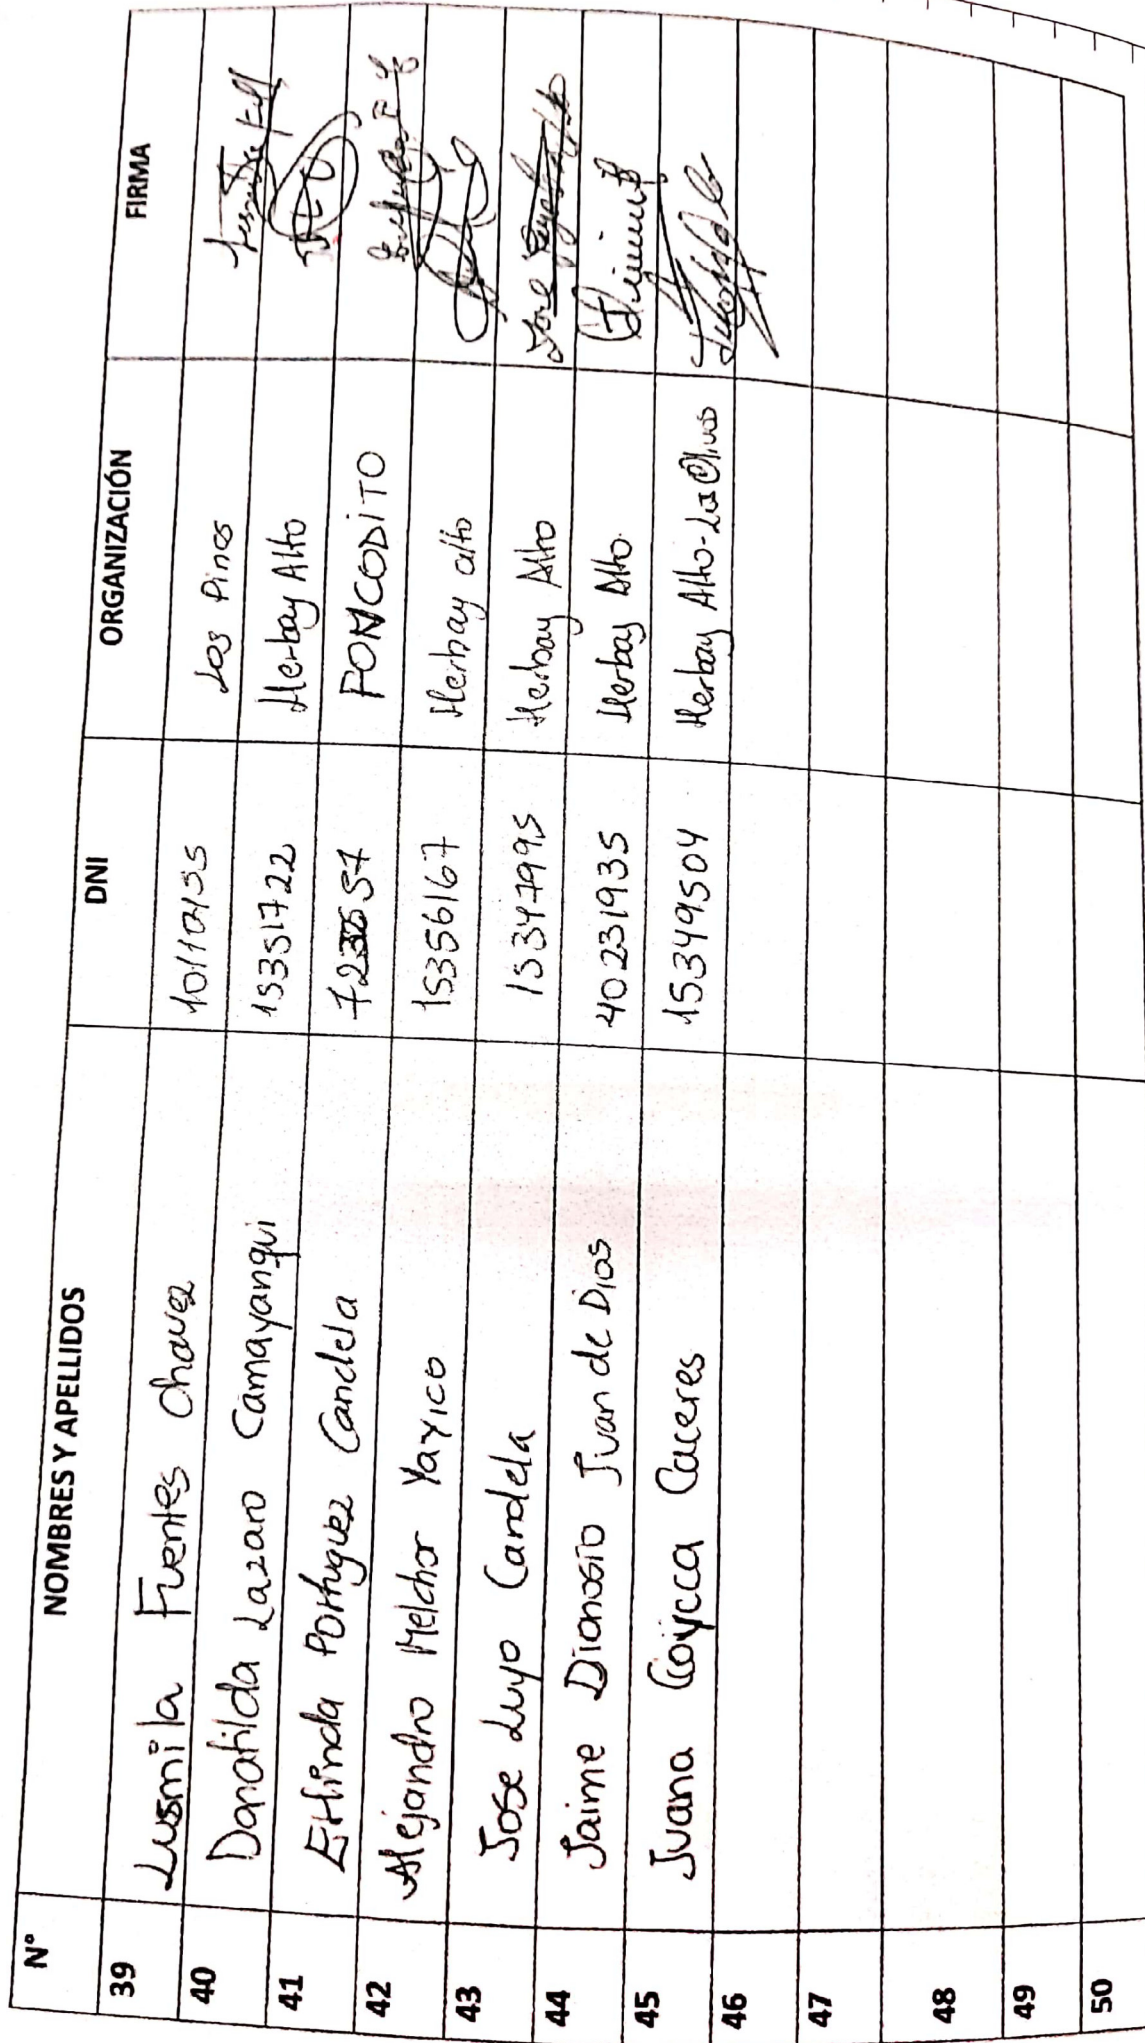 N° NOMBRES Y APELLIDOS DNI ORGANIZACIÓN FIRMA
39 Lusmila Fuentes Chavez Los Pinos
40 Donatilda Lazaro Camayanqui 15351722 Herbay Alto
41 Portuguez Candela FONCODITO
42 Alejandro Melchor Yayico 15356167 Herbay alto
43 Jose Luyo Candela 15347995 Herbay Alto
44 Jaime Dionosio Juan de Dios 40231935 Herbay Alto
45 Juana Coycca Caceres 15349504 Herbay Alto-
46
47
48
49
50